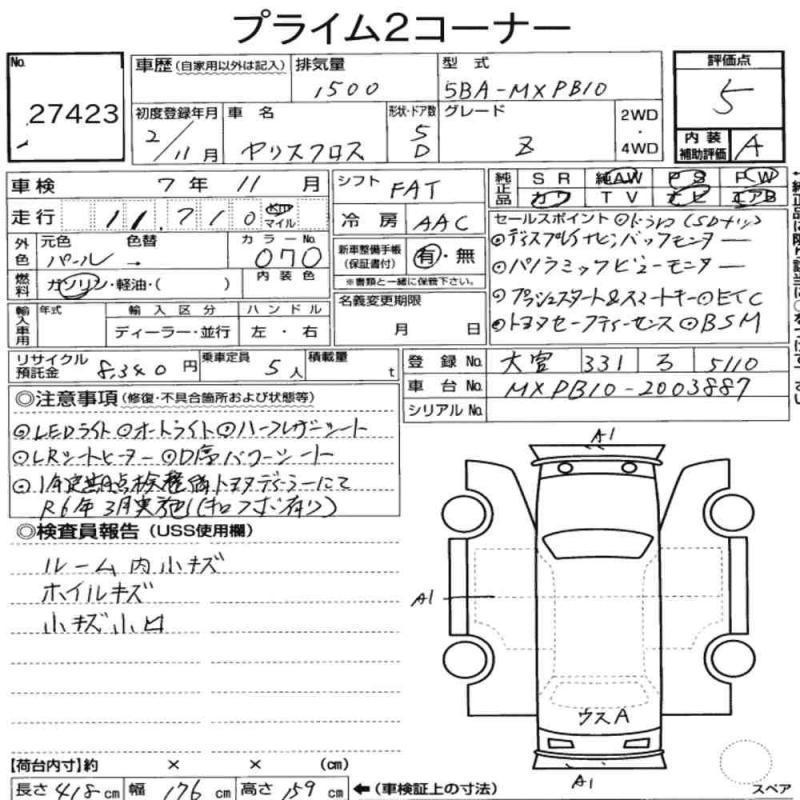 プライム2コーナー
No. 27423
車歴 (自家用以外は記入)
排気量 1500
型式 5BA-MXPB10
評価点 5
初度登録年月 2/11月
車名 ヤリスクロス
形状・ドア数 5D
グレード Z
2WD・4WD
内装補助評価 A
車検 7年11月
シフト FAT
純正品 SR 純AW PS PW
カワ TV ナビ エアB
走行 11,710 km マイル
冷房 AAC
セールスポイント
外色 元色 パール 色替 → カラーNo. 070
新車整備手帳(保証書付) 有・無
※書類と一緒に保管下さい。
⊙ディスプレイナビ バックモニター
⊙パノラミックビューモニター
燃料 ガソリン・軽油・( ) 内装色
名義変更期限 月 日
⊙プッシュスタート&スマートキー⊙ETC
⊙トヨタセーフティーセンス ⊙BSM
輸入車用 年式 輸入区分 ハンドル
ディーラー・並行 左・右
リサイクル預託金 8,340円
乗車定員 5人
積載量 t
登録No. 大宮 331 ろ 5110
車台No. MXPB10-2003887
シリアルNo.
◎注意事項 (修復・不具合箇所および状態等)
⊙LEDライト ⊙オートライト ⊙ハーフレザーシート
⊙LRシートヒーター ⊙D席パワーシート
⊙1年定期点検整備トヨタディーラーにて
R6年3月実施
◎検査員報告 (USS使用欄)
ルーム内小キズ
ホイルキズ
小キズ小凹
A1
A1
ウスA
A1
スペア
【荷台内寸】約 × × (cm)
長さ 418cm 幅 176cm 高さ 159cm ←(車検証上の寸法)